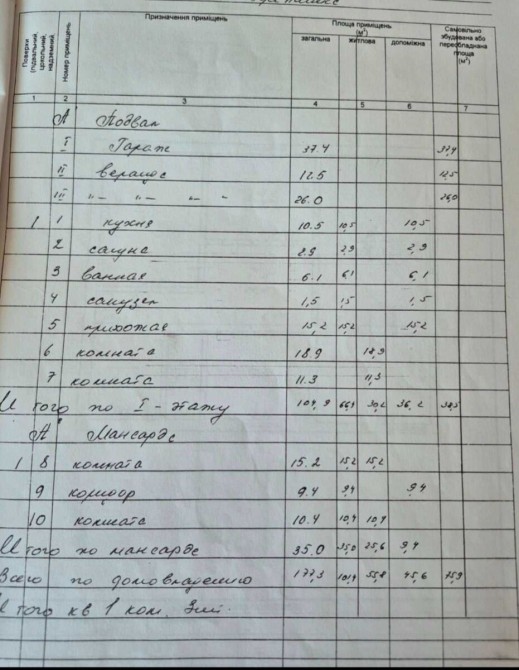 Призначення приміщень
Площа приміщень
(м²)
загальна житлова допоміжна
Самовільно збудована або переобладнана площа (м²)
Поверхи (підвальний, цокольний, надземний)
Номер приміщень
1 2 3 4 5 6 7
А Подвал
I Гараж 37.4 37,4
II веранда 12.5 12,5
III "– "– "– "– 26.0 26,0
1 1 кухня 10.5 10,5 10,5
2 2.9 2,9 2,9
3 ванная 6.1 6,1 6,1
4 санузел 1,5 1,5 1,5
5 прихожая 15,2 15,2 15,2
6 комната 18,9 18,9
7 комната 11.3 11,3
Итого по I - этажу 30,2 36,2
А Мансарда
1 8 комната 15.2 15,2 15,2
9 коридор 9.4 9,4 9,4
10 комната 10.4 10,4 10,4
Итого по мансарде 35.0 35,0 25,6 9,4
Всего по домовладению 177,3 101,9 55,8 45,6 75,9
Итого кв 1 ком.